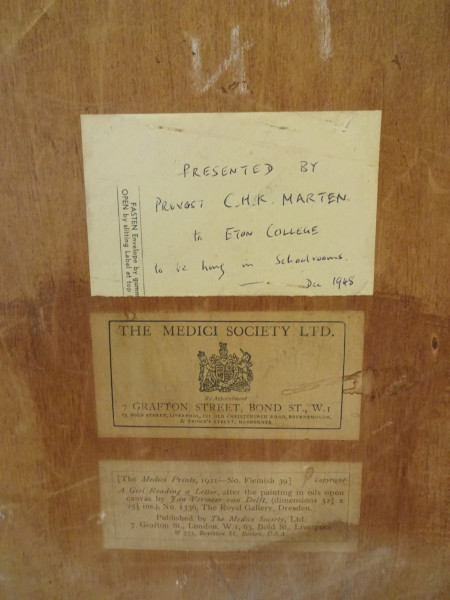 PRESENTED BY
PROVOST C.H.K. MARTEN
to ETON COLLEGE
to be hung in Schoolrooms.
Dec 1948
FASTEN Envelope by gumm
OPEN by slitting Label at top
THE MEDICI SOCIETY LTD.
By Appointment
7 GRAFTON STREET, BOND ST., W.1
63 BOLD STREET, LIVERPOOL, OLD CHRISTCHURCH ROAD, BOURNEMOUTH,
& PRINCE'S STREET, HARROGATE
[The Medici Prints, 1921—No. Flemish 39] Copyright
A Girl Reading a Letter, after the painting in oils upon
canvas by Jan Vermeer van Delft, (dimensions 32½ x
25¼ ins.), No. 1336, The Royal Gallery, Dresden.
Published by The Medici Society, Ltd.
7, Grafton St., London, W.1, 63, Bold St., Liverpool
Boylston St. Boston, U.S.A.